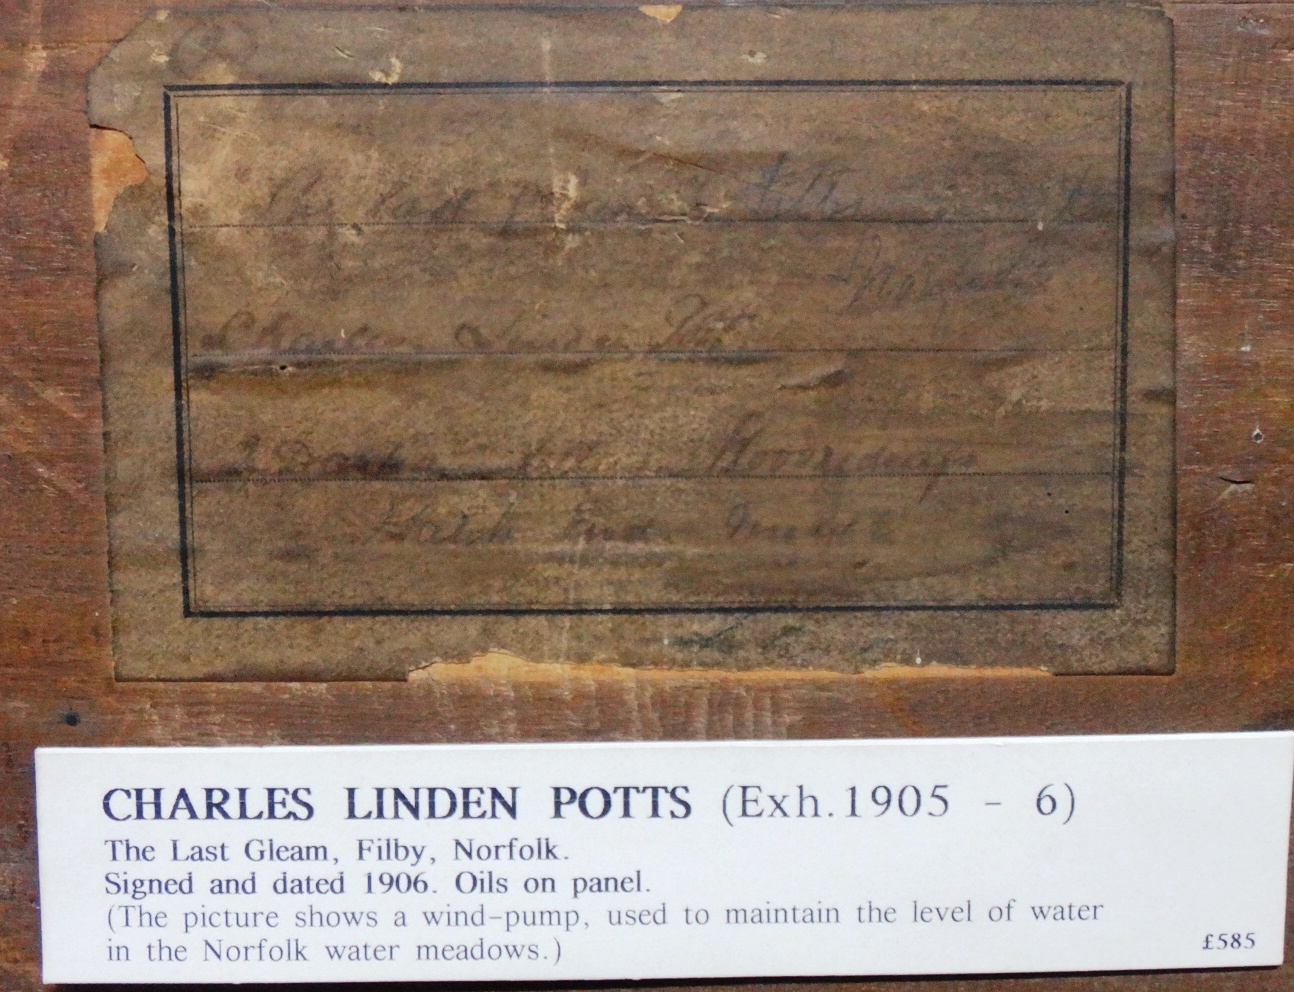 The Last Gleam Filby
Norfolk
Charles Linden Potts
Woodridings
Hatch End
CHARLES LINDEN POTTS (Exh.1905 – 6)
The Last Gleam, Filby, Norfolk.
Signed and dated 1906. Oils on panel.
(The picture shows a wind-pump, used to maintain the level of water
in the Norfolk water meadows.)
£585